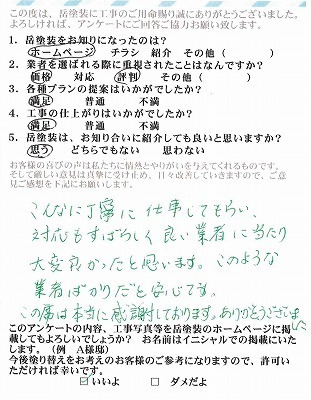 この度は、岳塗装に工事のご用命賜り誠にありがとうございました。
よろしければ、アンケートにご回答ご協力お願い致します。
1. 岳塗装をお知りになったのは?
ホームページ チラシ 紹介 その他( )
2. 業者を選ばれる際に重視されたことはなんですか?
価格 対応 評判 その他( )
3. 各種プランの提案はいかがでしたか?
満足 普通 不満
4. 工事の仕上がりはいかがでしたか?
満足 普通 不満
5. 岳塗装は、お知り合いに紹介しても良いと思いますか?
思う どちらでもない 思わない
お客様の喜びの声は私たちに情熱とやりがいを与えてくれるものです。
そして厳しい意見は真摯に受け止め、日々改善していきますので、ご意
見ご感想を下記にお願いします。
こんなに丁寧に仕事してもらい、
対応もすばらしく良い業者に当たり
大変良かったと思います。このような
業者ばかりだと安心です。
この度は本当に感謝しております。ありがとうございました
このアンケートの内容、工事写真等を岳塗装のホームページに掲
載してもよろしいでしょうか? お名前はイニシャルでの掲載にいた
します。(例 A様邸)
今後塗り替えをお考えのお客様のご参考になりますので、許可い
ただければ幸いです。
☑ いいよ □ ダメだよ